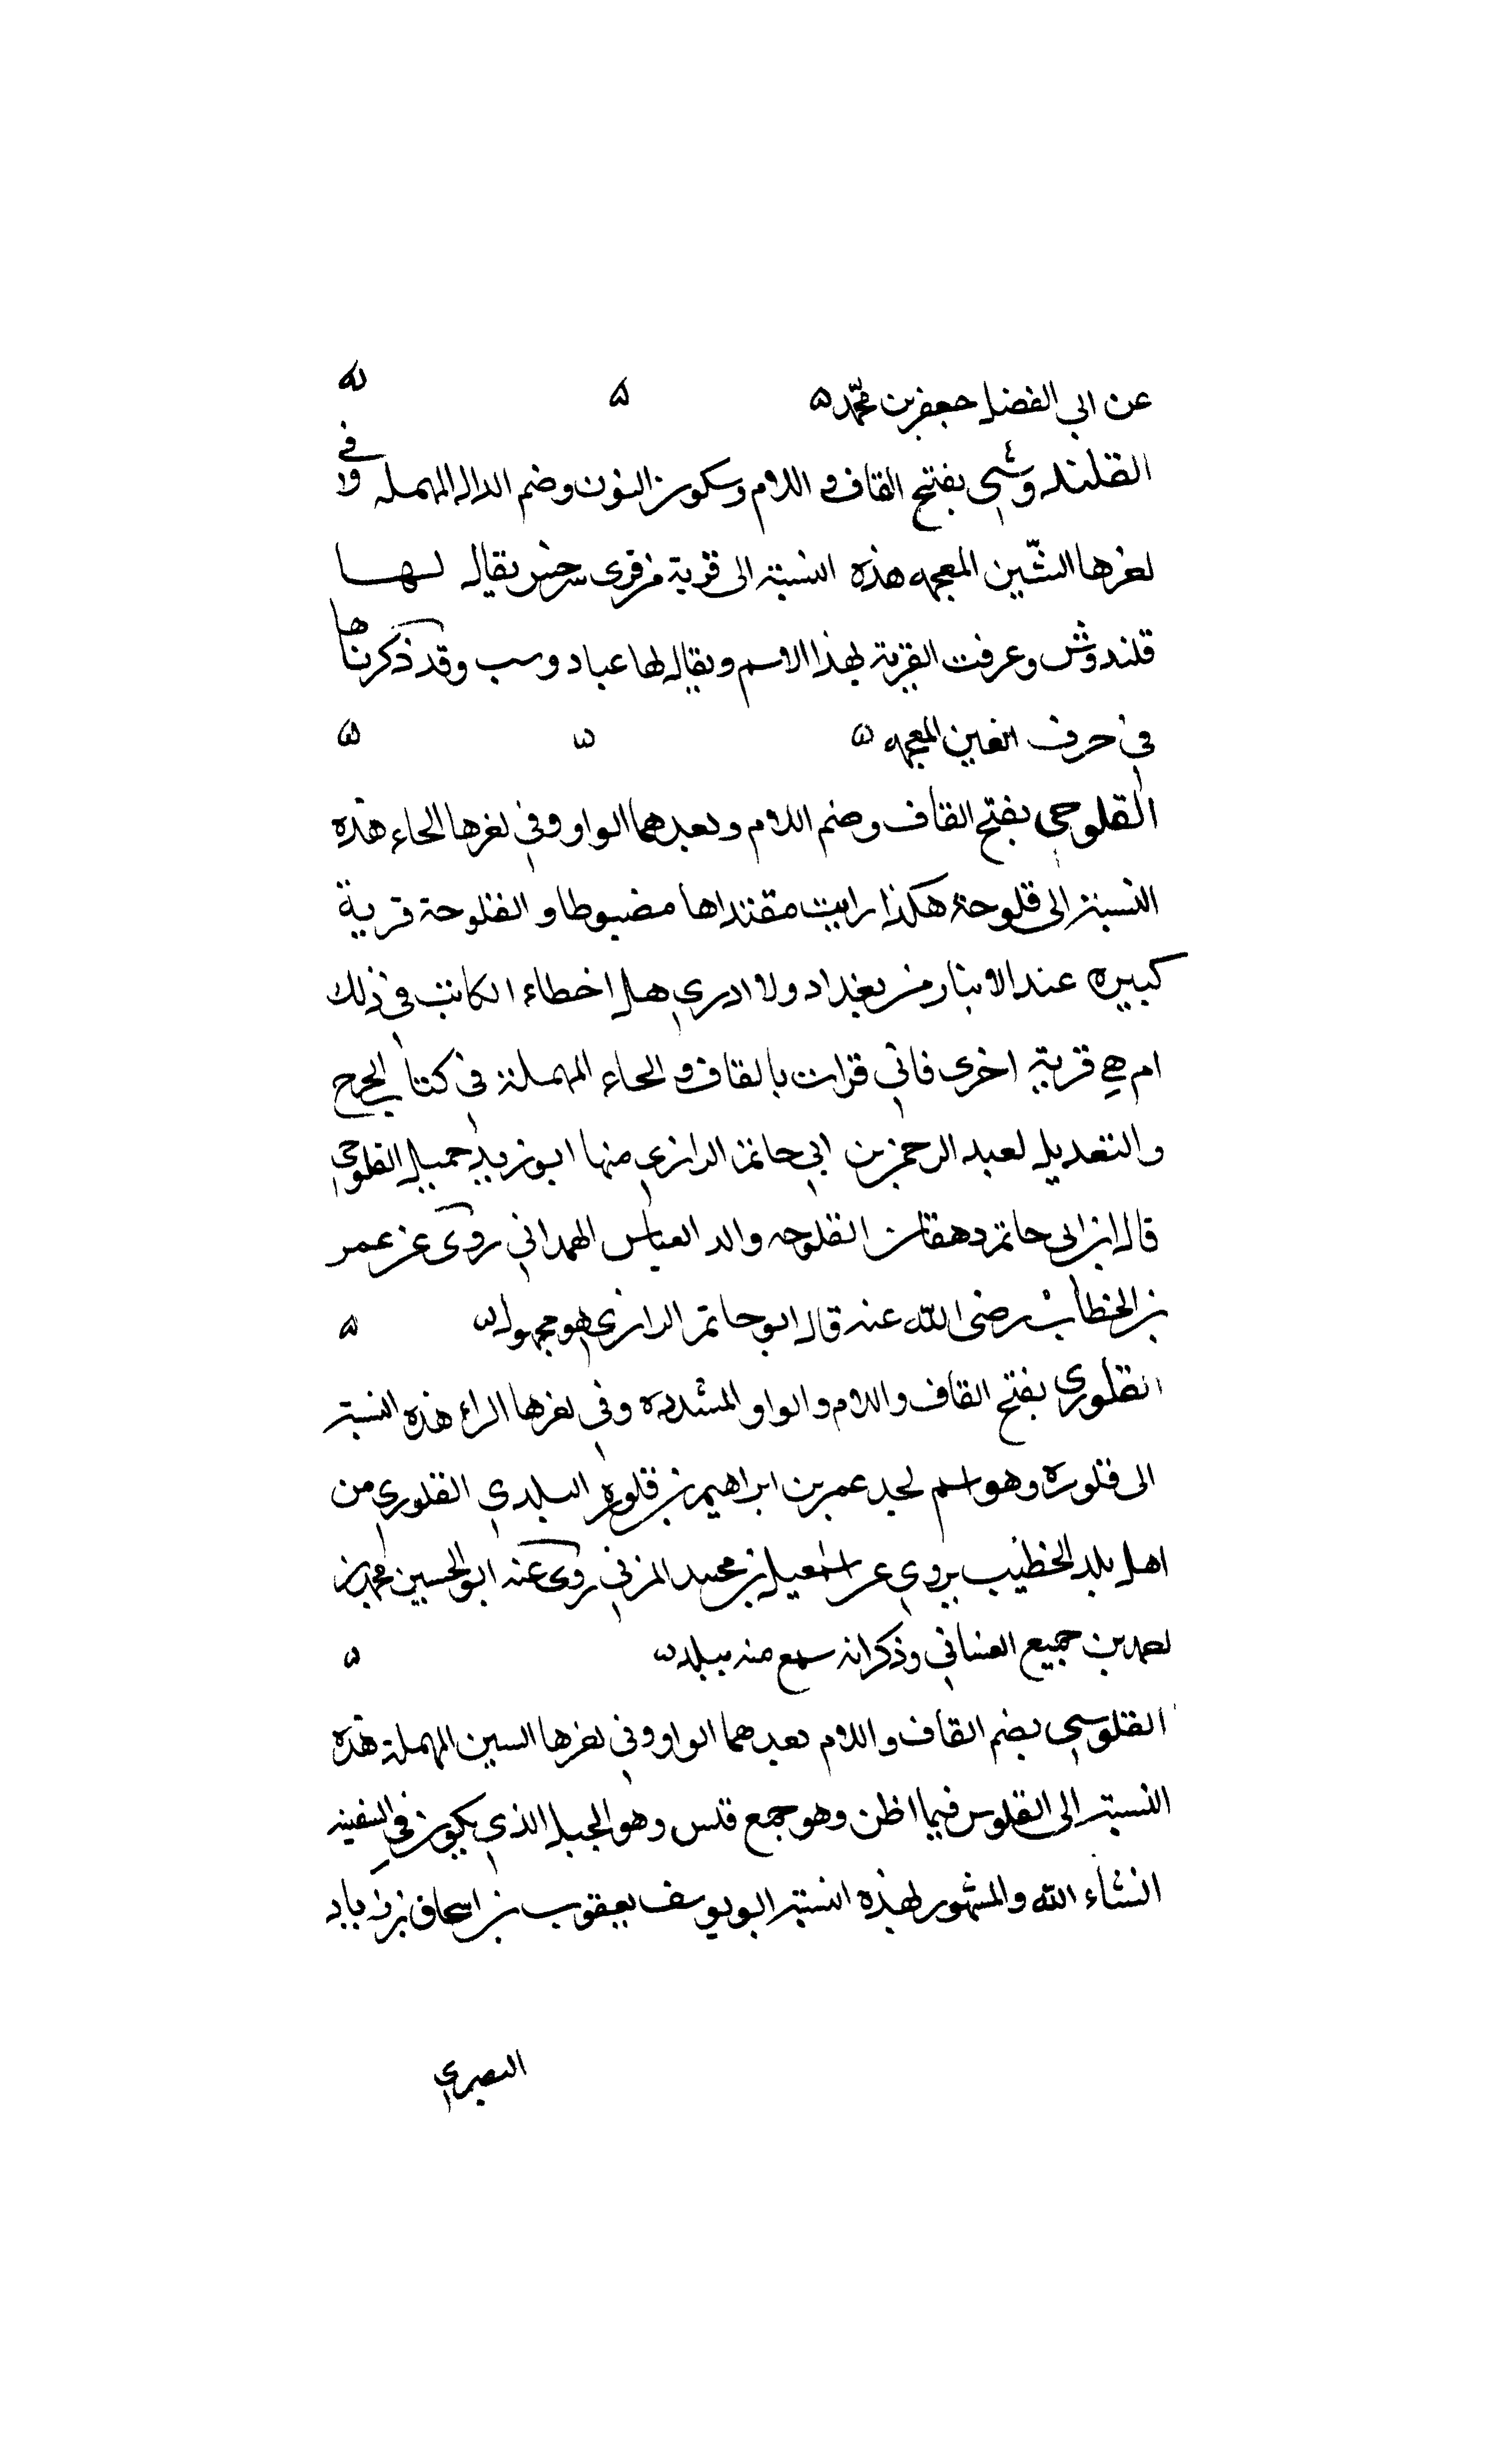 عن ابي الفضل جعفر بن محمد ه ه
القلندوشي بفتح القاف و اللام وسكون النون وضم الدال المهملة وفي
اخرها الشين المعجمه هذه النسبة الى قرية من قرى سرخس يقال لها
قلندوش وعرفت القرية بهذا الاسم ويقال لها عباد وسب وقد ذكرناها
في حرف الغين المعجمه ه ه ه
القلوحي بفتح القاف وضم اللام وبعدهما الواو وفي اخرها الحاء هذه
النسبة الى قلوحة هكذا رايت مضبوطا و الفلوحة قرية
كبيره عند الانبار من بغداد ولا ادري هل اخطاء الكاتب في ذلك
ام هي قرية اخرى فاني قرات بالقاف و الحاء المهملة في كتاب الجرح
والتعديل لعبد الرحمن بن ابي حاتم الرازي منها ابو زيد جميل القلوحي
قال ابن ابى حاتم دهقان القلوحه والد العباس الهمداني روى عن عمر
بن الخطاب رضى الله عنه قال ابو حاتم الرازي هو مجهول ه ه
القلوري بفتح القاف واللام والواو المشدده وفي اخرها الراء هذه النسبة
الى قلوره وهو اسم لجد عمر بن ابراهيم بن قلوره البلدي القلوري من
اهل بلد الخطيب يروي عن اسمعيل بن محمد المزني روى عنه ابو الحسين محمد بن
احمد بن جميع الغساني وذكر انه سمع منه ببلد ه ه
القلوسي بضم القاف واللام بعدهما الواو وفي اخرها السين المهملة هذه
النسبة الى القلوس فيما اظن وهو جمع قلس وهو الحبل الذي يكون في السفينه
انشاء الله والمشهور بهذه النسبة ابو يوسف يعقوب بن اسحاق بن زياد
البصري